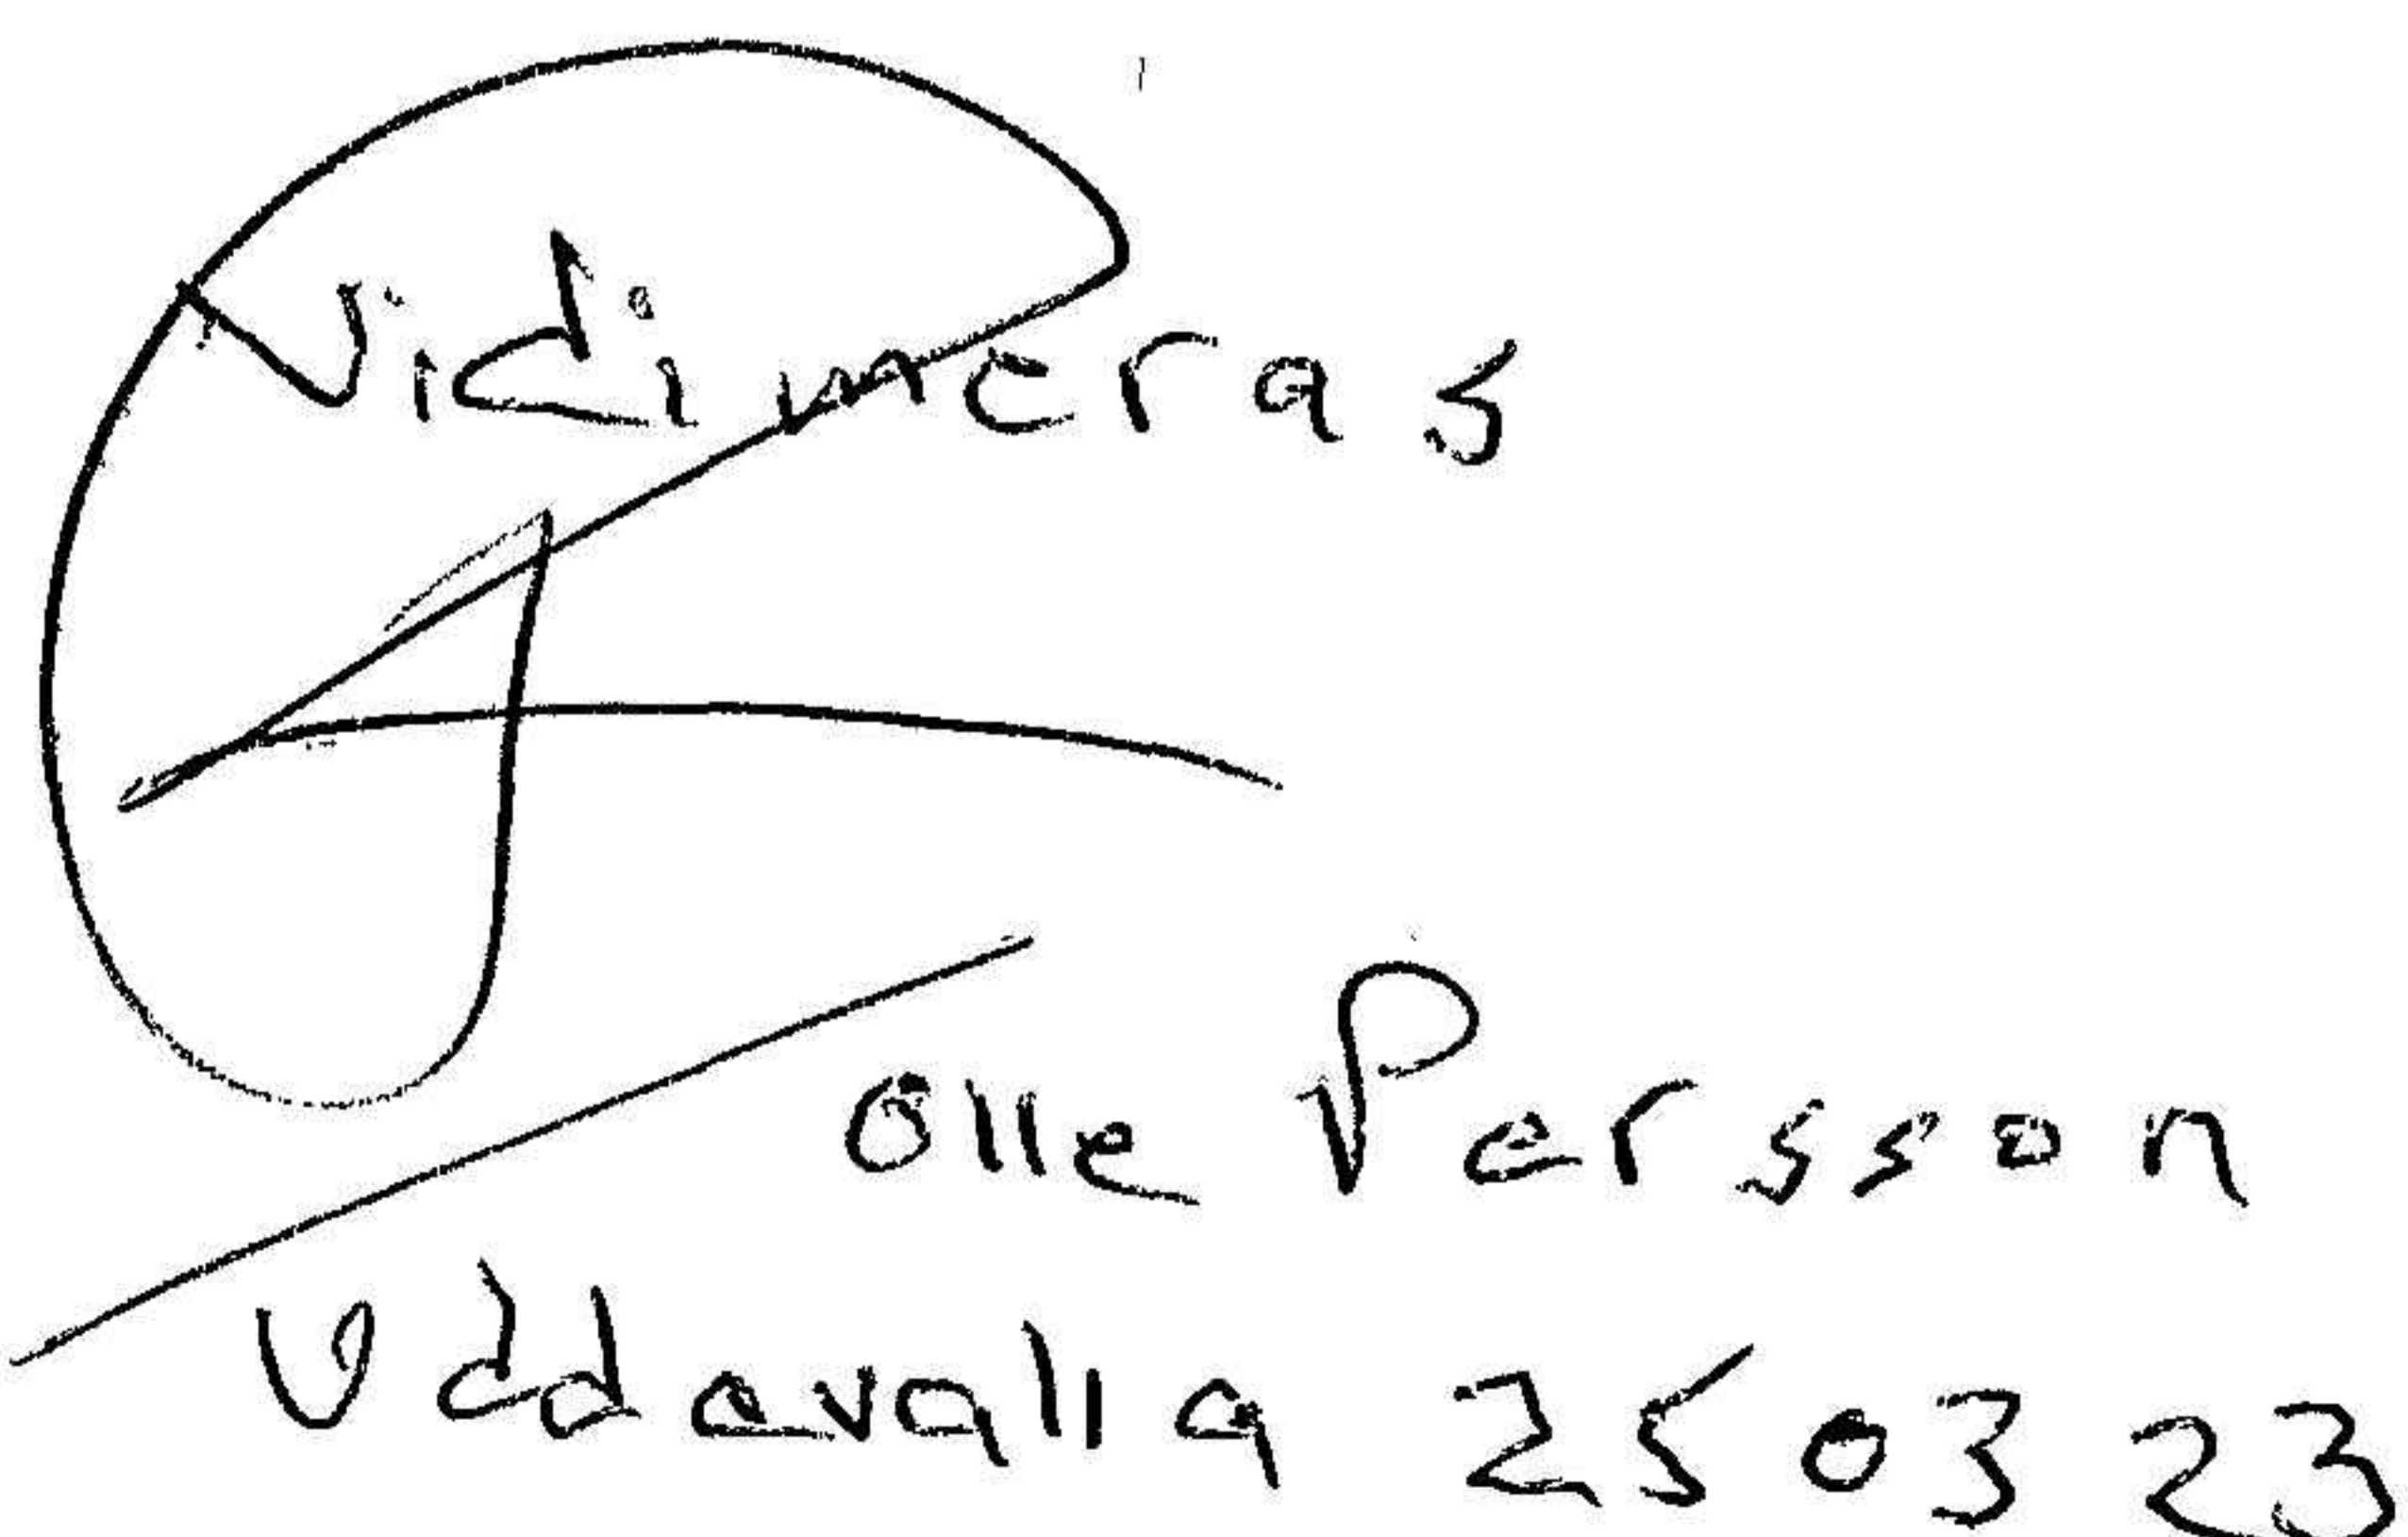 Vidimeras
Olle Persson
Uddevalla 250323